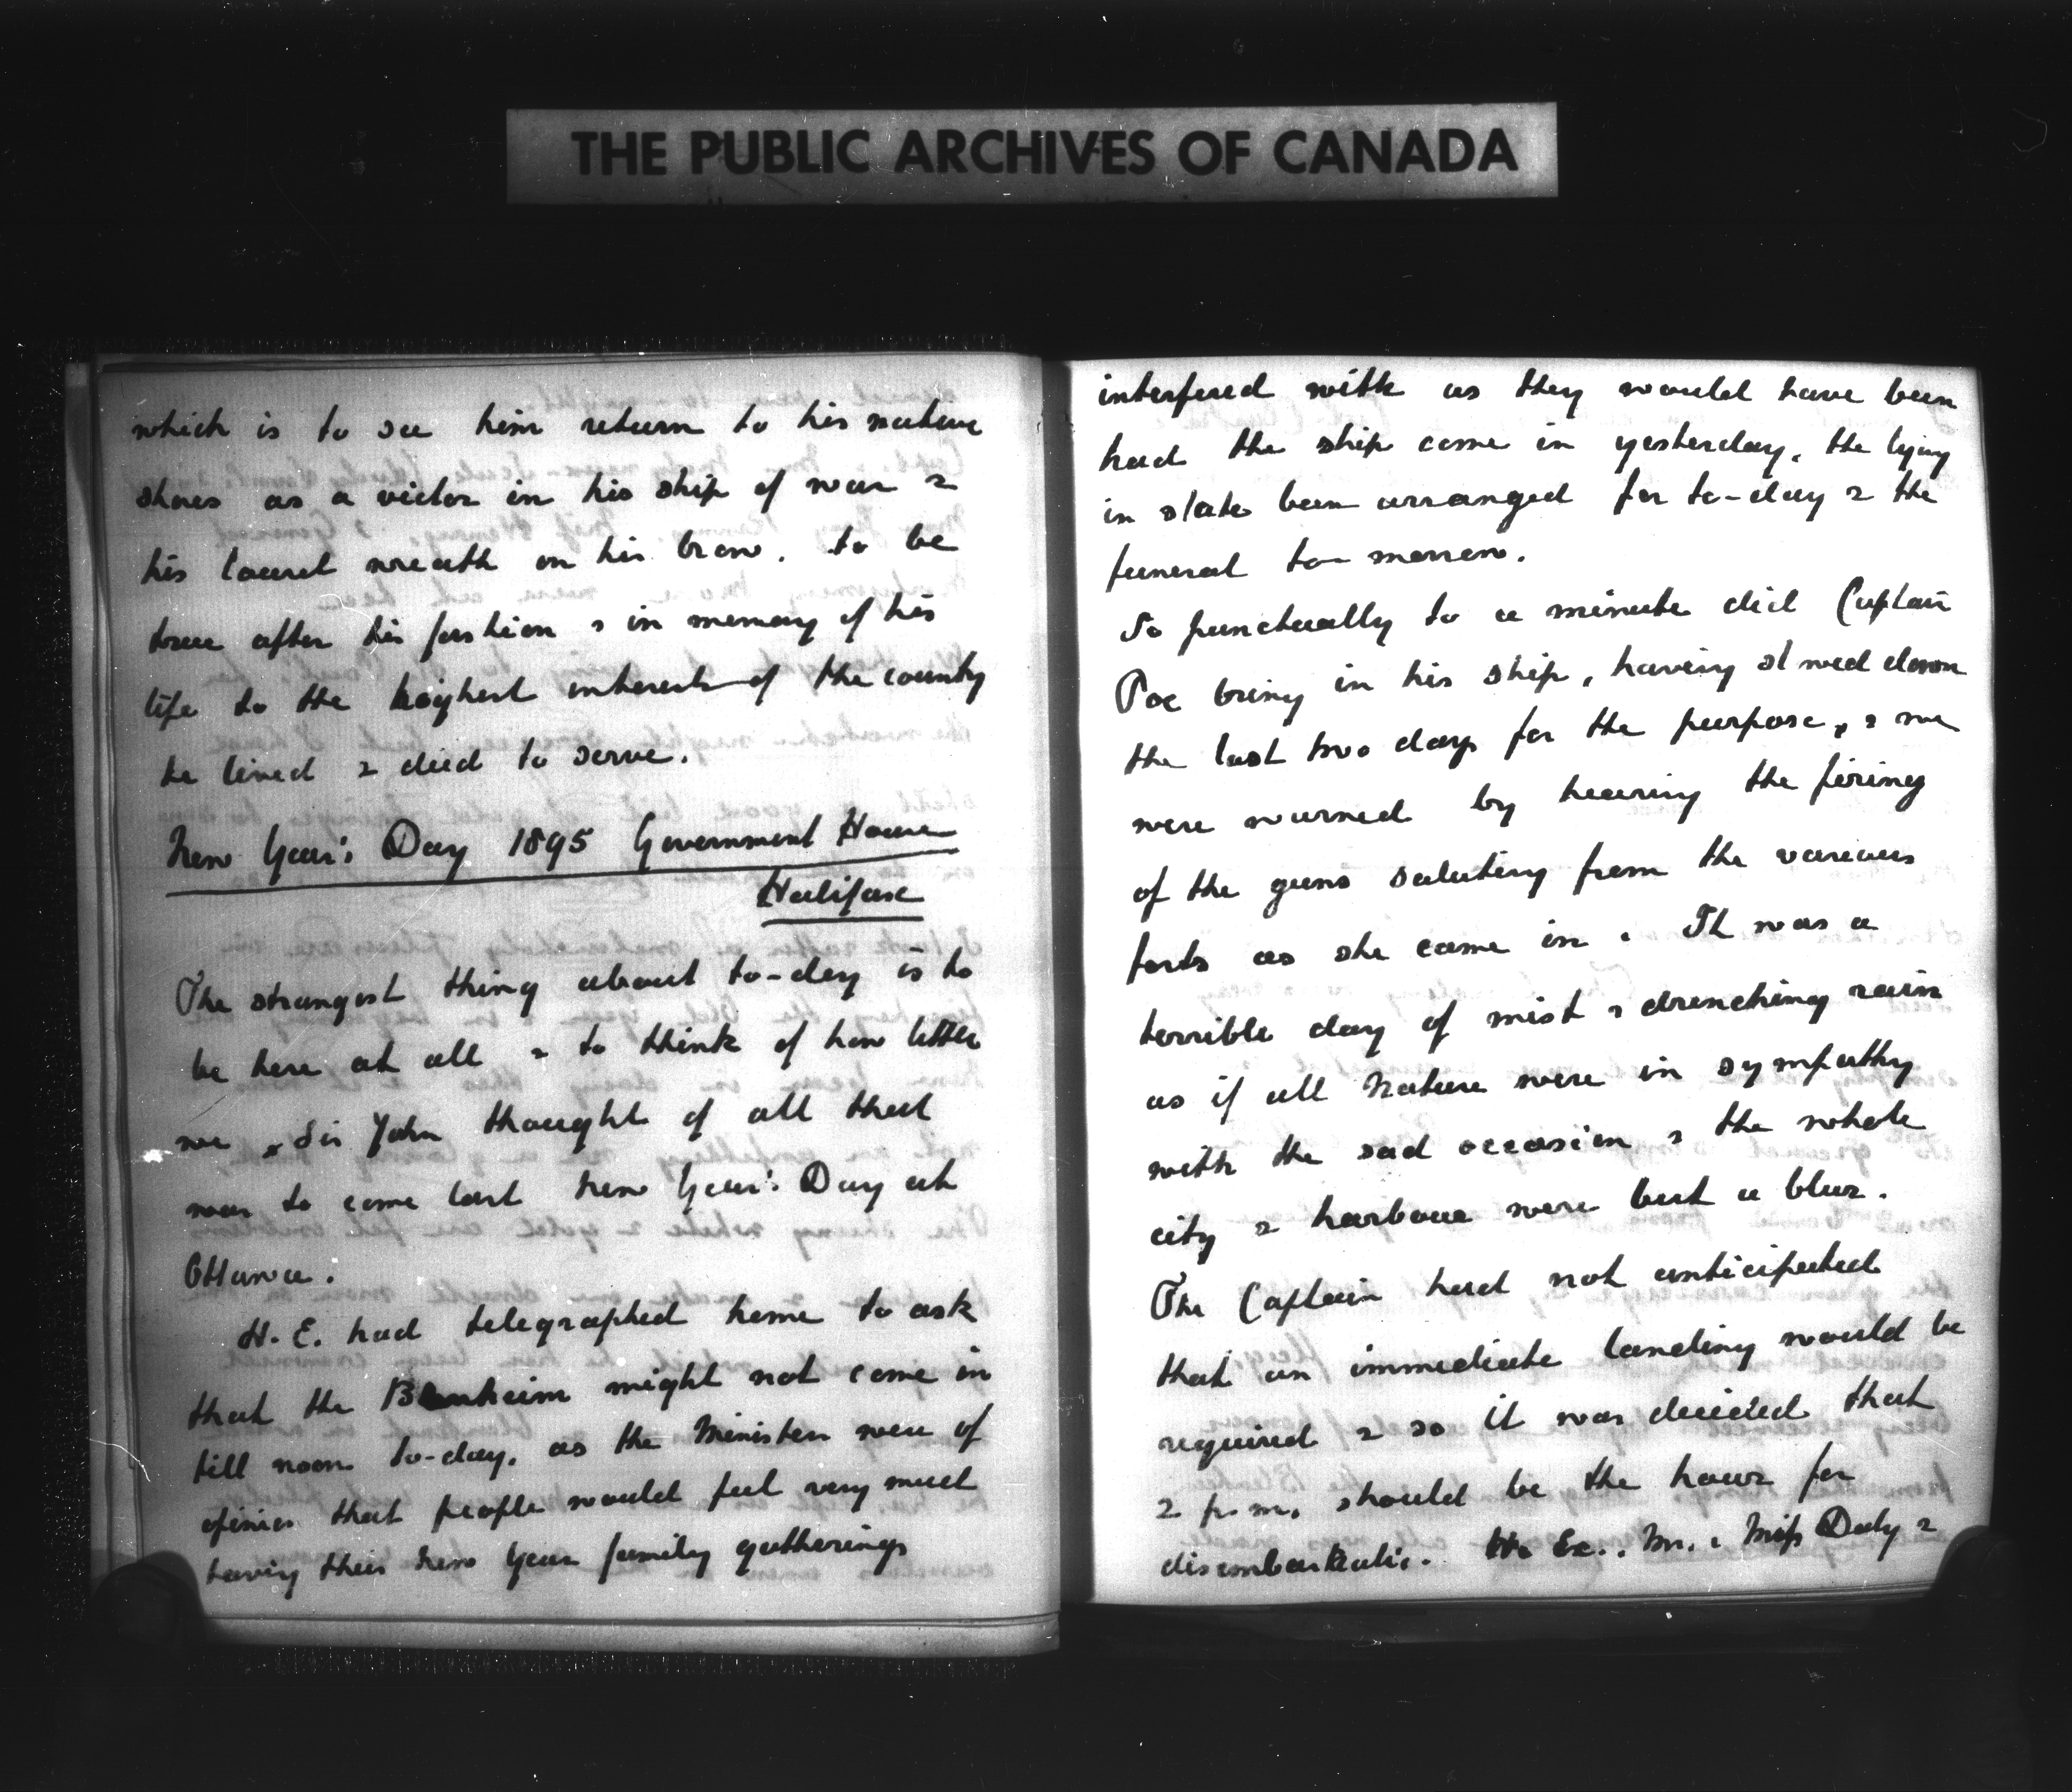 THE PUBLIC ARCHIVES OF CANADA
which is to see him return to his native
shores as a victor in his ship of war &
his laurel wreath on his brow. to be
true after his fashion & in memory of his
life to the highest interests of the country
he lived & died to serve.
New Year's Day 1895 Government House
Halifax
The strangest thing about to-day is to
be here at all & to think of how little
we & Sir John thought of all that
was to come last New Year's Day at
Ottawa.
H. E. had telegraphed home to ask
that the Blenheim might not come in
till noon to-day, as the Ministers were of
opinion that people would feel very much
having their New Year family gatherings
interfered with as they would have been
had the ship come in yesterday, the lying
in state been arranged for to-day & the
funeral to-morrow.
So punctually to a minute did Captain
Poe bring in his ship, having slowed down
the last two days for the purpose, & we
were warned by hearing the firing
of the guns saluting from the various
forts as she came in. It was a
terrible day of mist & drenching rain
as if all Nature were in sympathy
with the sad occasion & the whole
city & harbour were but a blur.
The Captain had not anticipated
that an immediate landing would be
required & so it was decided that
2 p.m. should be the hour for
disembarkation. His Ex., Mr. & Miss Daly &